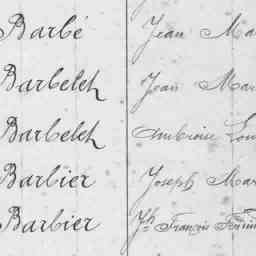 Barbé Jean Ma
Barbelch Jean Mar
Barbelch Ambroise Lou
Barbier Joseph Mar
Barbier Jh François